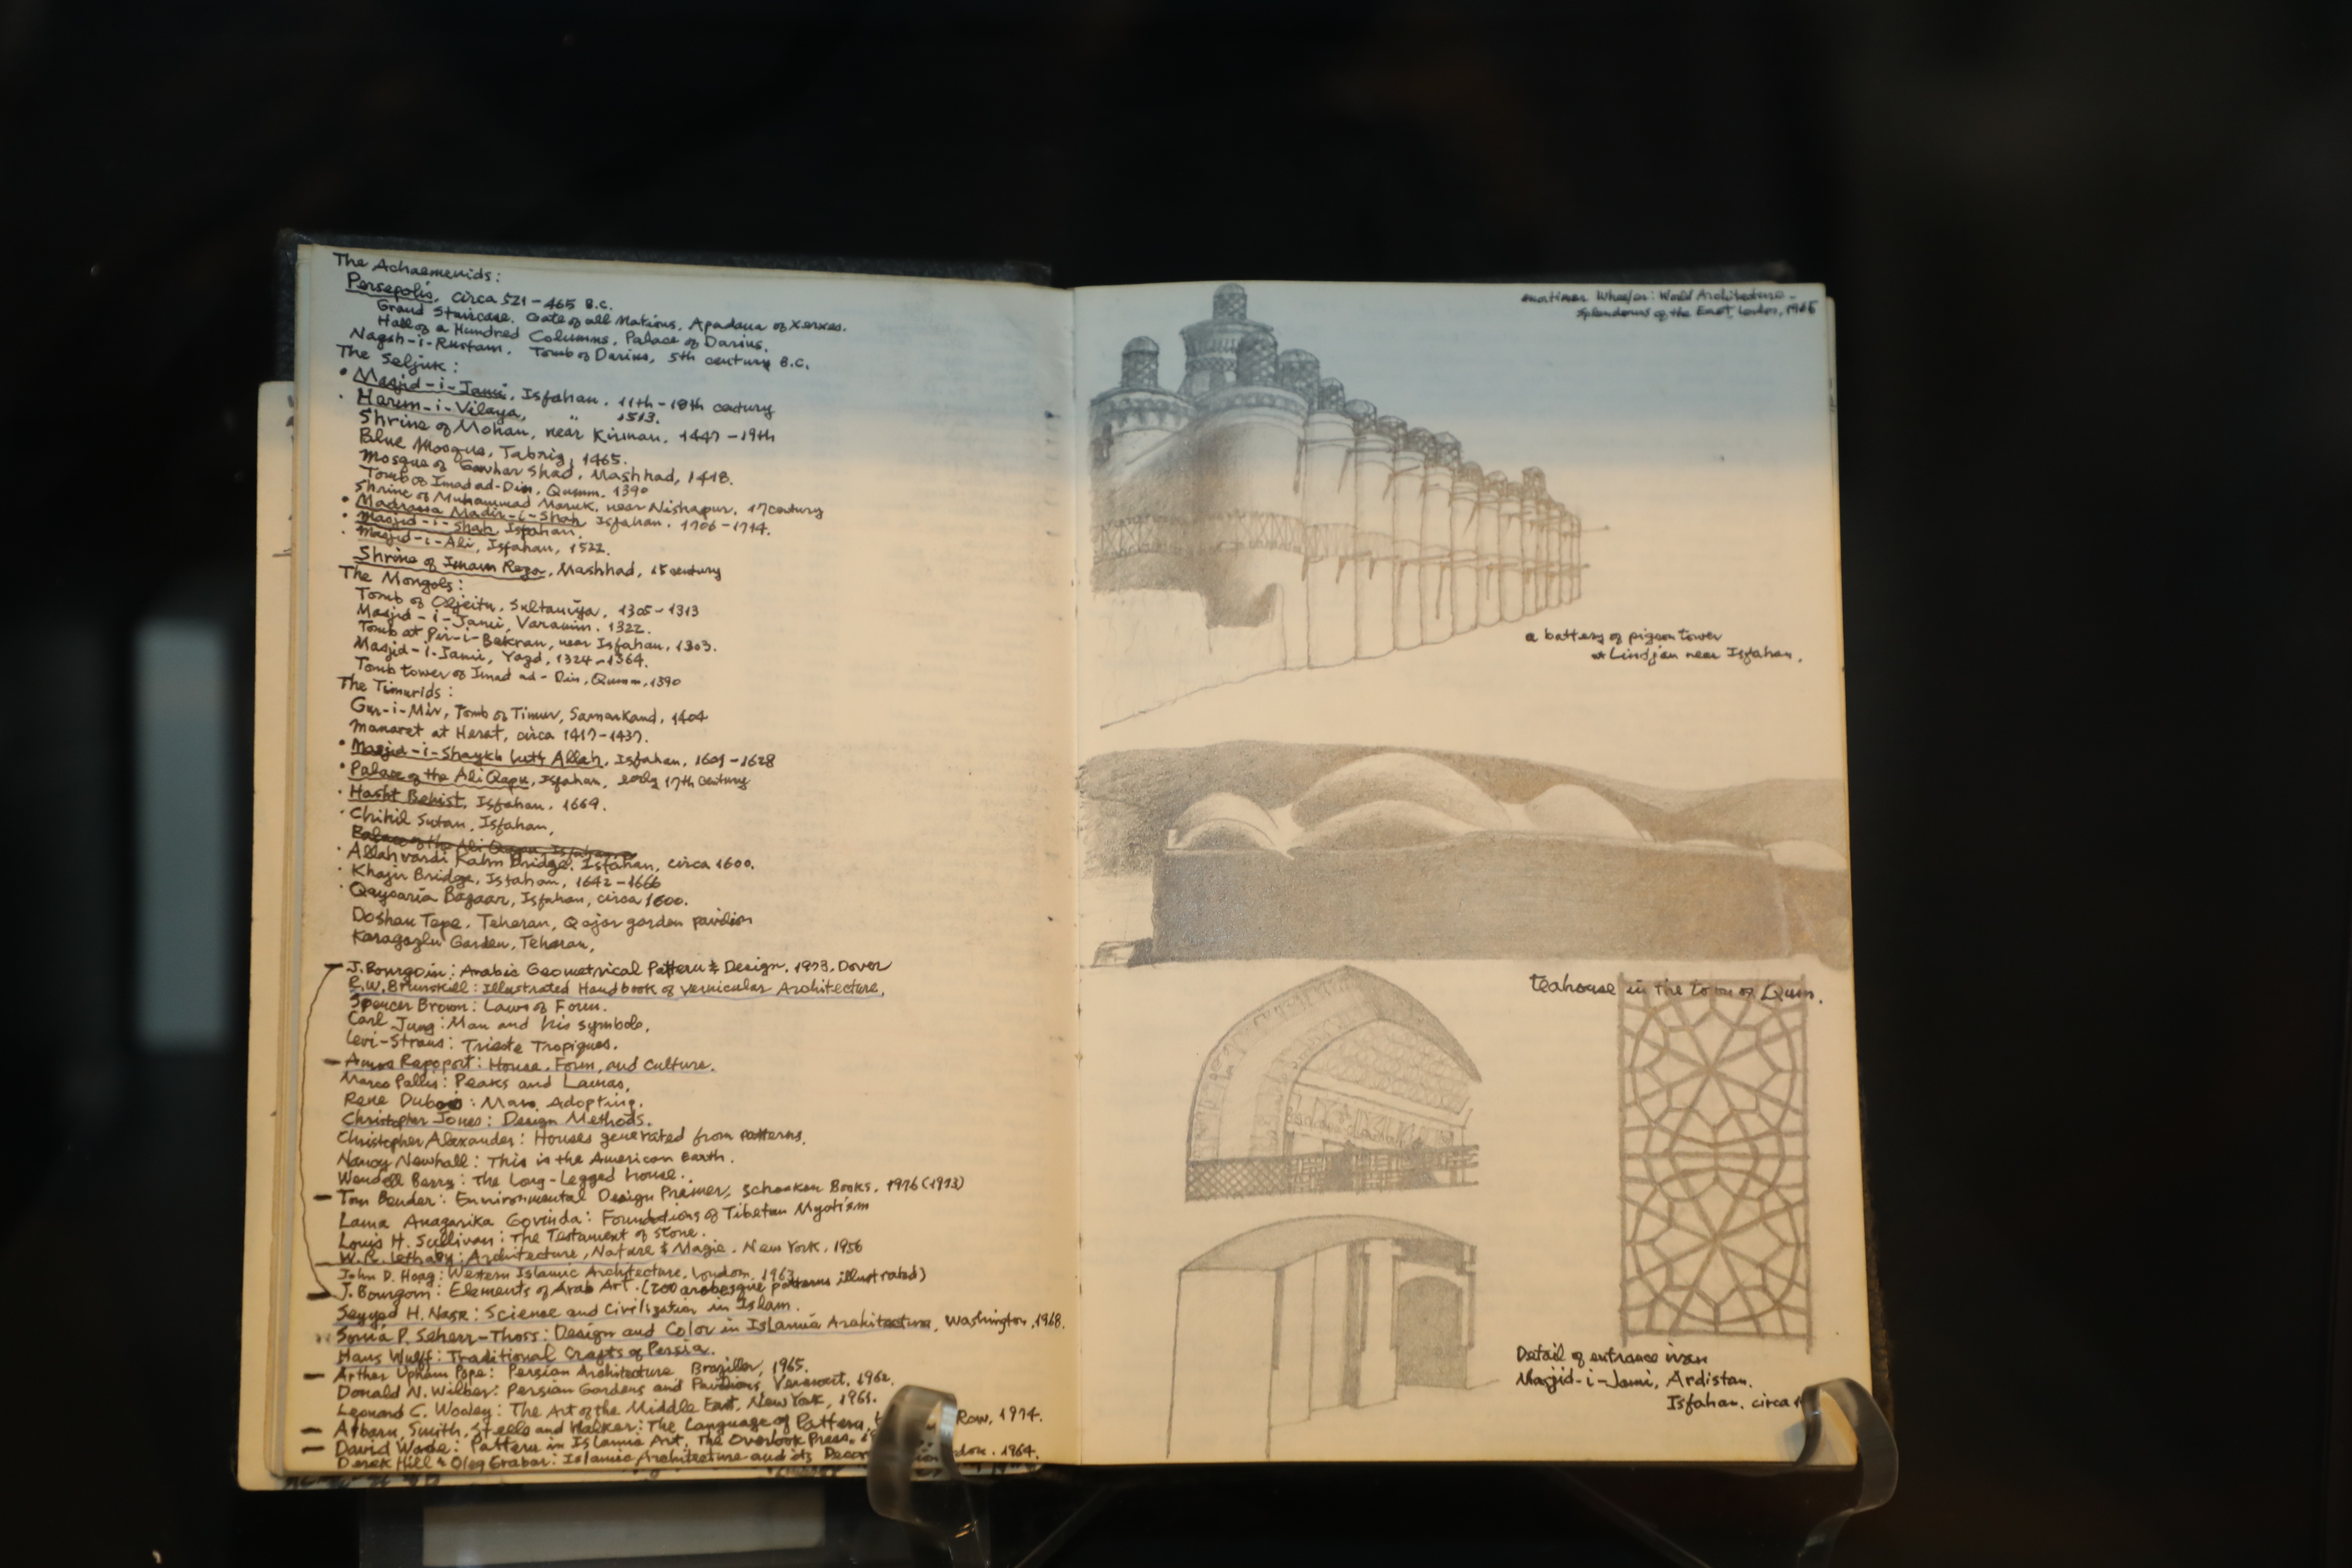 The Achaemenids:
Persepolis, circa 521-465 B.C.
Grand Staircase. Gate of all Nations, Apadana of Xerxes.
Hall of a Hundred Columns, Palace of Darius.
Naqsh-i-Rustam. Tomb of Darius, 5th century B.C.
The Seljuk:
• Masjid-i-Jami, Isfahan. 11th-18th century
• Harun-i-Vilaya, " 1513.
Shrine of Mohan, near Kirman, 1447-19th
Blue Mosque, Tabriz, 1465.
Mosque of Gawhar Shad, Mashhad, 1418.
Tomb of Imad ad-Din, Qumm. 1390
Shrine of Muhammad Maruk, near Nishapur. 17century
• Madrassa Madir-i-Shah Isfahan. 1706-1714.
• Masjid-i-Shah Isfahan.
• Masjid-i-Ali, Isfahan, 1522.
Shrine of Imam Reza, Mashhad, 15 century
The Mongols:
Tomb of Oljeitu, Sultaniya, 1305-1313
Masjid-i-Jami, Varamin. 1322.
Tomb at Pir-i-Bakran, near Isfahan, 1303.
Masjid-i-Jami, Yazd, 1324-1364.
Tomb tower of Imad ad-Din, Qumm, 1390
The Timurids:
Gur-i-Mir, Tomb of Timur, Samarkand, 1404
Manaret at Herat, circa 1417-1437.
• Masjid-i-Shaykh Lutf Allah, Isfahan, 1601-1628
• Palace of the Ali Qapu, Isfahan, early 17th century
• Hasht Behist, Isfahan. 1669.
• Chihil Sutan, Isfahan,
Palace of the Ali Qapu, Isfahan
• Allahvardi Kahn Bridge, Isfahan, circa 1600.
• Khaju Bridge, Isfahan, 1642-1666
• Qaysaria Bazaar, Isfahan, circa 1600.
Doshan Tape, Teheran, Qajar garden pavilion
Karagozlu Garden, Teheran,
J. Bourgoin: Arabic Geometrical Pattern & Design. 1973. Dover
R.W. Brunskill: Illustrated Handbook of Vernicular Architecture,
Spencer Brown: Laws of Form.
Carl Jung: Man and his symbols,
Levi-Straus: Trieste Tropiques.
Amos Rapoport: House, Form, and Culture.
Marco Pallis: Peaks and Lamas,
Rene Dubois: Man Adopting.
Christopher Jones: Design Methods.
Christopher Alexander: Houses generated from patterns.
Nancy Newhall: This is the American Earth.
Wendell Berry: The Long-Legged house.
Tom Bender: Environmental Design Primer, Schocken Books. 1976 (1973)
Lama Anagarika Govinda: Foundations of Tibetan Mystism
Louis H. Sullivan: The Testament of Stone.
W.R. Lethaby: Architecture, Nature & Magic. New York. 1956
John D. Hoag: Western Islamic Architecture. London. 1963
J. Bourgoin: Elements of Arab Art. (200 arabesque patterns illustrated)
Seyyed H. Nasr: Science and Civilization in Islam.
Sonia P. Seherr-Thoss: Design and Color in Islamic Architecture, Washington, 1968.
Hans Wulff: Traditional Crafts of Persia.
Arthur Upham Pope: Persian Architecture, Braziller, 1965.
Donald N. Wilber: Persian Gardens and Pavilions, Vermont. 1962.
Leonard C. Wooley: The Art of the Middle East, New York, 1961.
Albarn, Smith, Steele and Walker: The Language of Pattern, Row, 1974.
David Wade: Pattern in Islamic Art, The Overlook Press.
Derek Hill & Oleg Grabar: Islamic Architecture and its 1964.
Mortimer Wheeler: World Architecture -
Splendours of the East, London, 1965
a battery of pigeon tower
at Lindjan near Isfahan.
teahouse in the town of Qum.
Detail of entrance iwan
Masjid-i-Jami, Ardistan.
Isfahan. circa